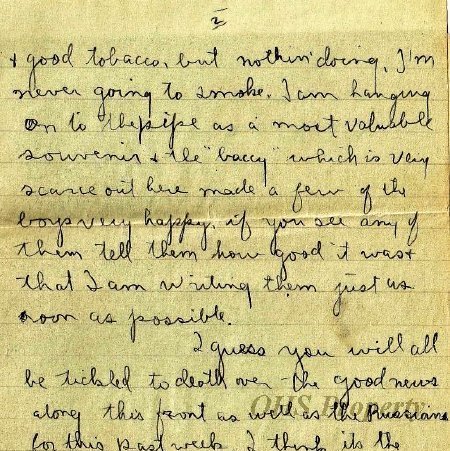 2
& good tobacco, but nothin' doing, I'm
never going to smoke. I am hanging
on to the pipe as a most valuable
souvenir & the "baccy" which is very
scarce out here made a few of the
boys very happy. if you see any of
them tell them how good it was &
that I am writing them just as
soon as possible.
I guess you will all
be tickled to death over the good news
along this front as well as the Russians
for this past week. I think its the
OHS Property